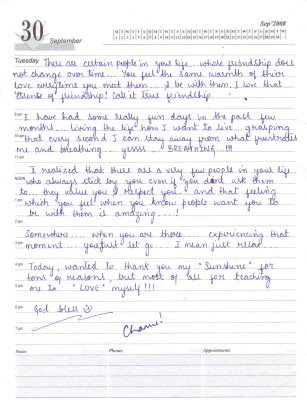 30
September
Sep'2008
Tuesday
There are certain people in your life.. whose friendship does
not change over time... You feel the same warmth of their
love everytime you meet them... & be with them. I love that
essence of friendship! Call it true friendship.
8 am
I have had some really fun days in the past few
9 am
months... living the life how I want to live.. grasping
that every second I can stay away from what frustrates
10 am
me and breathing... yesss.. BREATHING...!!!
11 am
I realized that there are a very few people in your life
NOON
who always stick by you even if you don't ask them
1 pm
to... they value you & respect you... and that feeling
which you feel when you know people want you to
2 pm
be with them is amazing...!
3 pm
Somewhere... when you are there experiencing that
4 pm
moment... you just let go... I mean just relax.....
5 pm
Today, wanted to thank you my "Sunshine" for
6 pm
tons of reasons, but most of all for teaching
me to "LOVE" myself!!!
7 pm
8 pm
God bless
9 pm
Notes Phones Appointments